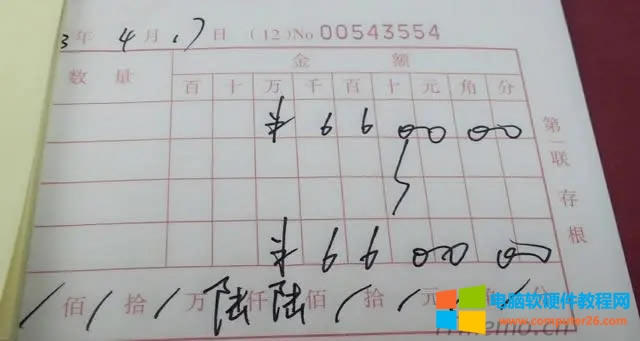 3 年 4 月 17 日 (12) No 00543554
数 量 金 额
百 十 万 千 百 十 元 角 分
¥ 6 6 0 0 0 0
¥ 6 6 0 0 0 0
佰 拾 万 陆 仟 陆 佰 拾 元 角 分
第一联存根
电脑软硬件教程网
www.computer26.com